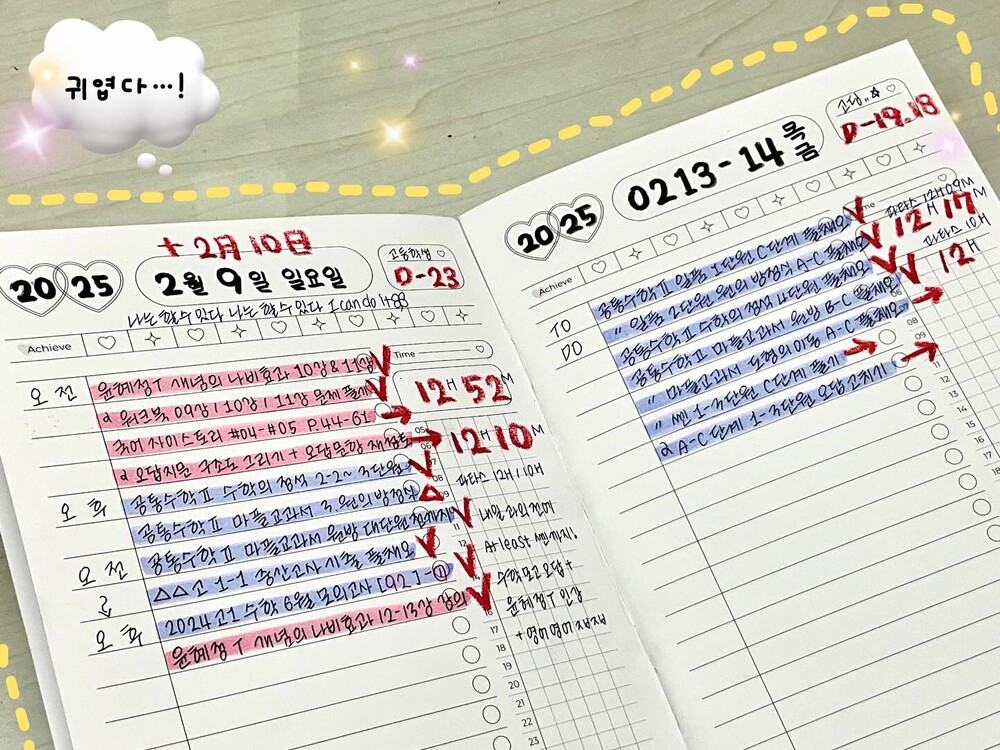 귀엽다…!
+ 2月 10日
2025
2월 9일 일요일
고등학생 ♡
D-23
나는 할 수 있다 나는 할 수 있다 I can do it
Achieve
Time
오전
윤혜정T 개념의 나비효과 10강 & 11강
12H 52M
α 워크북 09강 / 10강 / 11강 문제 풀기
국어 자이스토리 #04-#05 P.44-61
12H 10M
α 오답지문 구조도 그리기 + 오답문항 재점토
오후
공통수학Ⅱ 수학의 정석 2-2~ 3단원
파타스 12H / 10H
공통수학Ⅱ 마플교과서 3. 원의 방정식
공통수학Ⅱ 마플교과서 원방 대단원 전까지
내일
오전
△△고 1-1 중간고사 기출 풀채오
At least 쎈까지!
2024 고1 수학 6월 모의고사 [92] - ⑪
수학 모고 오답 +
오후
윤혜정T 개념의 나비효과 12-13강 강의
윤혜정T 인강
+ 영어 영어
08
09
11
12
16
17
18
19
20
21
22
23
2025
0213-14 목금
고딩.. ☆ ♡
D-19.18
Achieve
Time
파타스 12H 09M
12H 17M
파타스 10H
12H
TO
DO
공통수학Ⅱ 일품 1단원 C단계 풀채오
〃 일품 2단원 원의 방정식 A-C 풀채오
공통수학Ⅱ 수학의 정석 4단원 풀채오
공통수학Ⅱ 마플교과서 원방 B-C 풀채오
〃 마플교과서 도형의 이동 A-C 풀채오
〃 쎈 1-3단원 C단계 풀기
α A-C 단계 1-3단원 오답 고치기
08
09
11
12
13
14
15
16
17
18